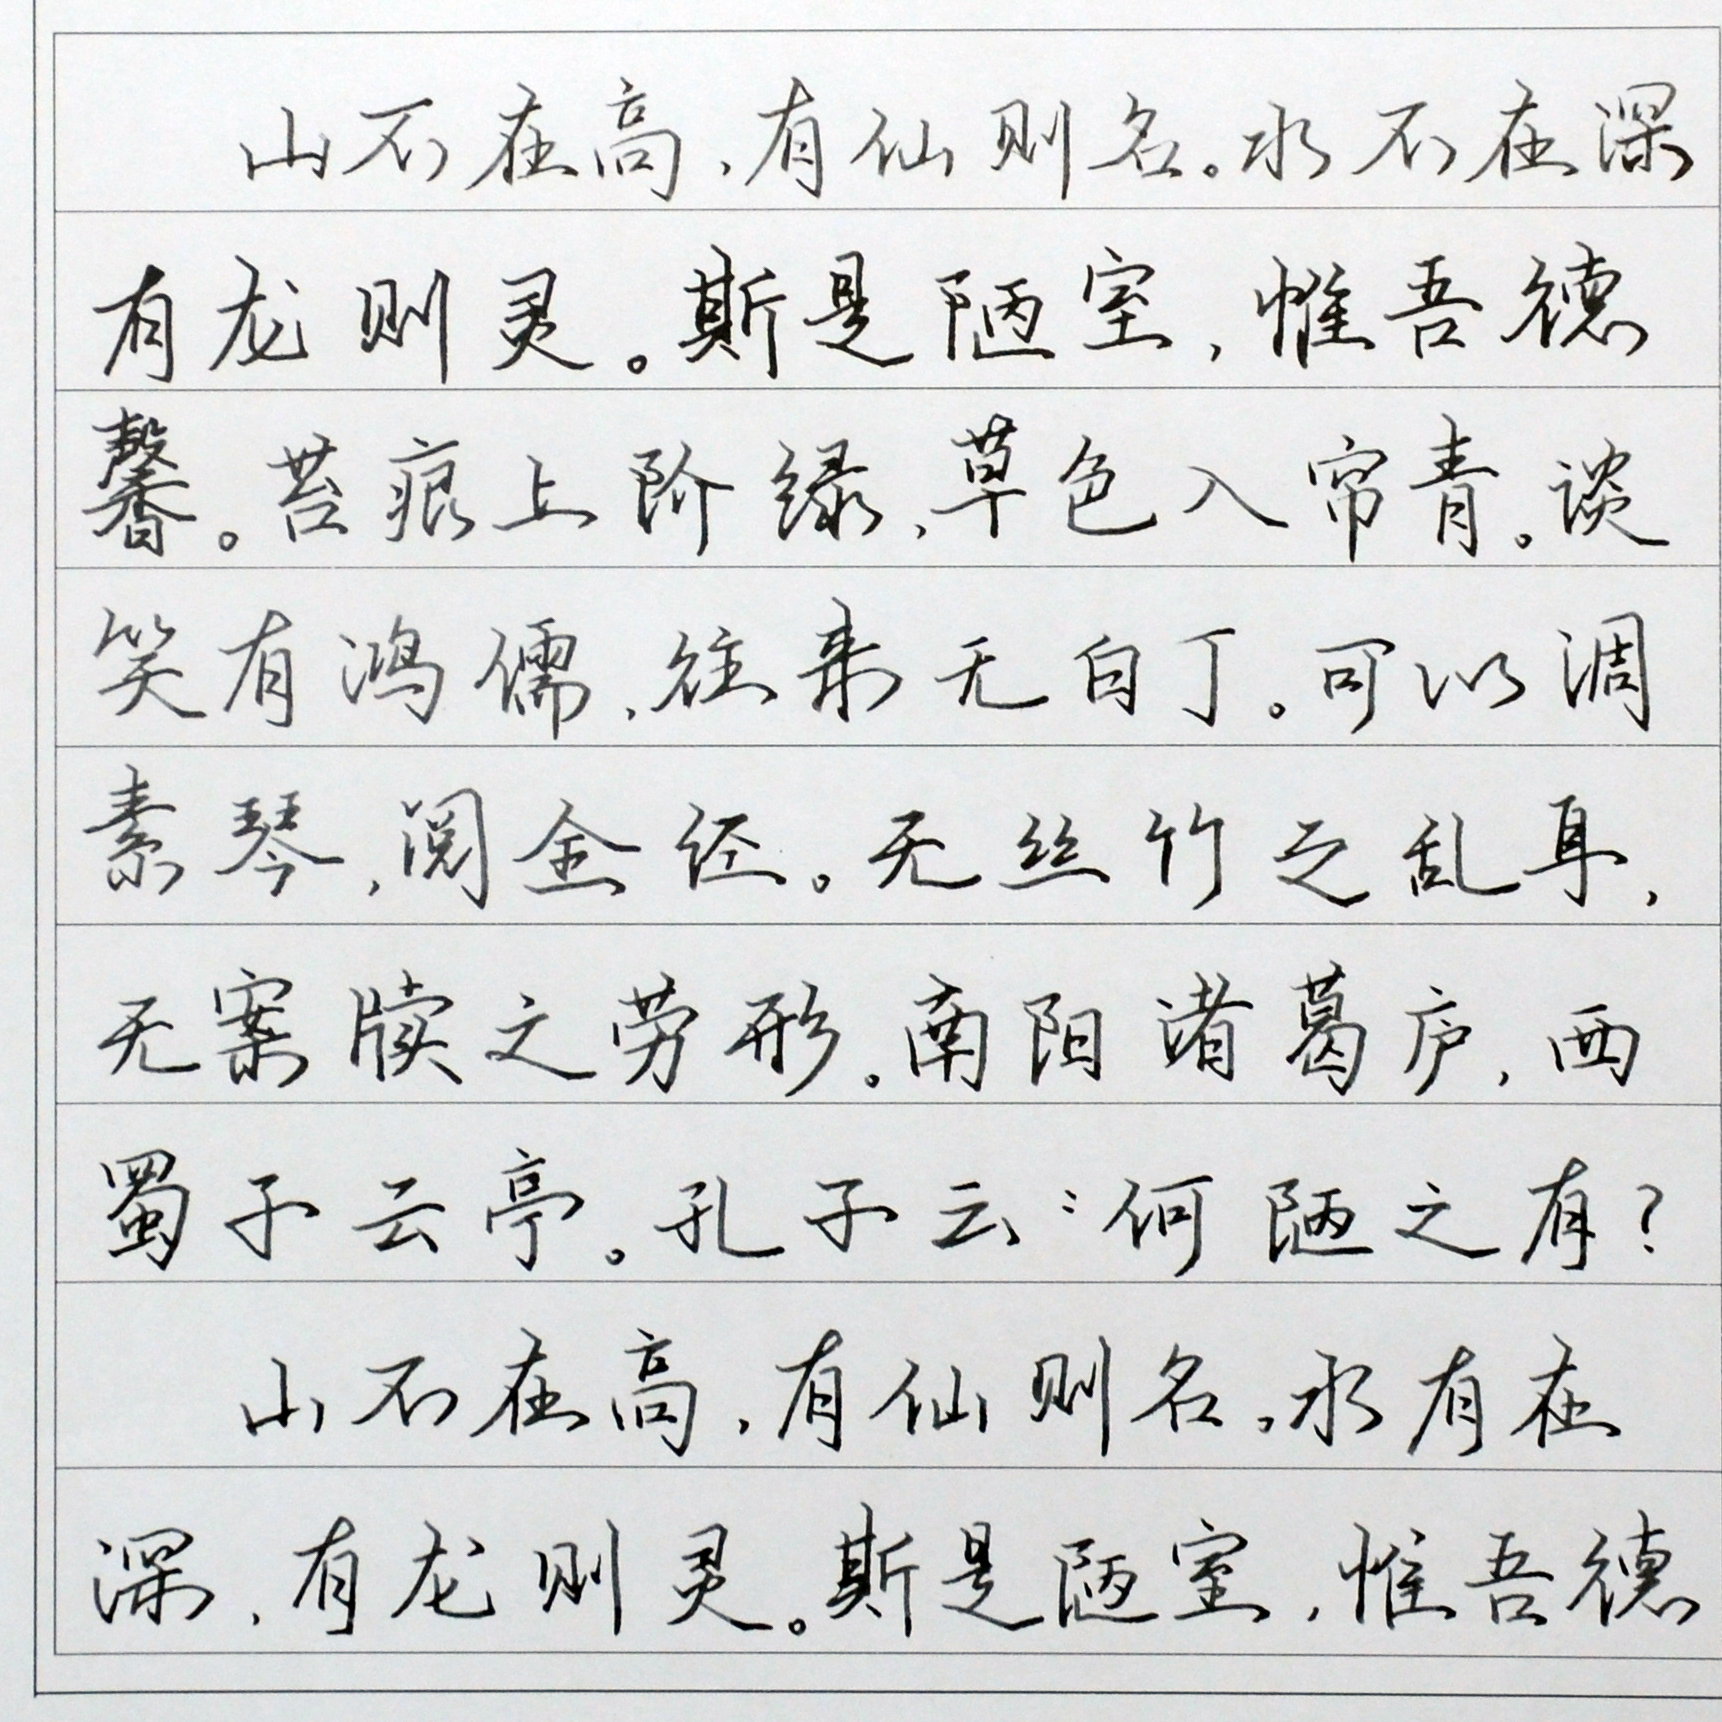 山不在高，有仙则名。水不在深
有龙则灵。斯是陋室，惟吾德
馨。苔痕上阶绿，草色入帘青。谈
笑有鸿儒，往来无白丁。可以调
素琴，阅金经。无丝竹之乱耳，
无案牍之劳形。南阳诸葛庐，西
蜀子云亭。孔子云：何陋之有？
山不在高，有仙则名。水有在
深，有龙则灵。斯是陋室，惟吾德